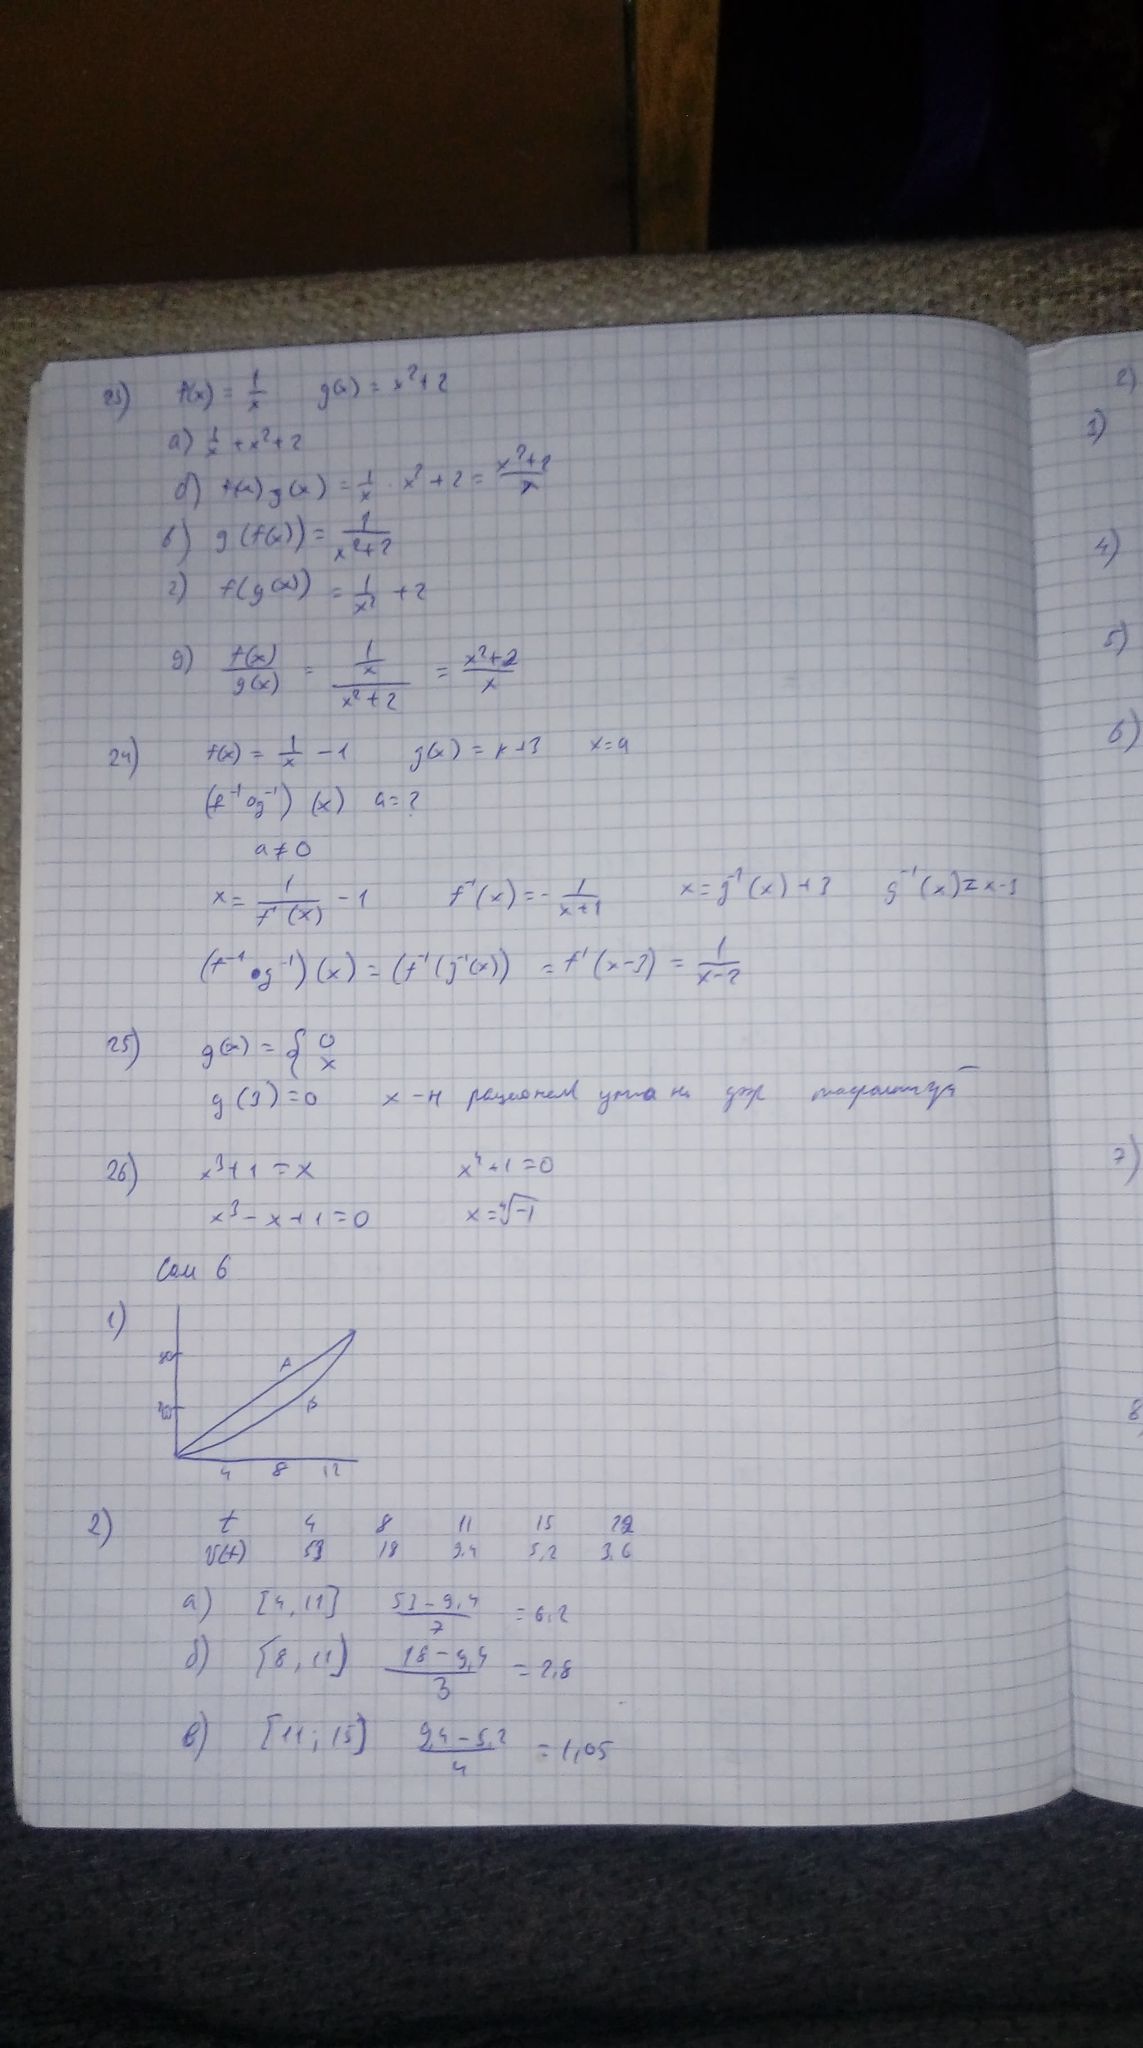 23) f(x) = 1/x g(x) = x²+2
а) 1/x + x²+2
б) f(x) g(x) = 1/x · x²+2 = (x²+2)/x
в) g(f(x)) = 1/(x²+2)
г) f(g(x)) = 1/x² + 2
д) f(x)/g(x) = (1/x)/(x²+2) = (x²+2)/x
24) f(x) = 1/x - 1 g(x) = x+3 x=a
(f⁻¹ o g⁻¹) (x) a=?
a≠0
x = 1/f⁻¹(x) - 1 f⁻¹(x) = - 1/(x+1) x = g⁻¹(x) + 3 g⁻¹(x) = x-3
(f⁻¹ o g⁻¹)(x) = (f⁻¹(g⁻¹(x)) = f⁻¹(x-3) = 1/(x-2)
25) g(x) = { 0
x
g(3) = 0 x - н
26) x³+1 = x x⁴+1=0
x³-x+1=0 x=⁴√-1
Сам 6
1)
A
B
4 8 12
2) t 4 8 11 15 22
v(t) 53 18 9,4 5,2 3,6
а) [4, 11] (53-9,4)/7 = 6,2
б) [8, 11] (18-9,4)/3 = 2,8
в) [11; 15] (9,4-5,2)/4 = 1,05
2)
3)
4)
5)
6)
7)
8